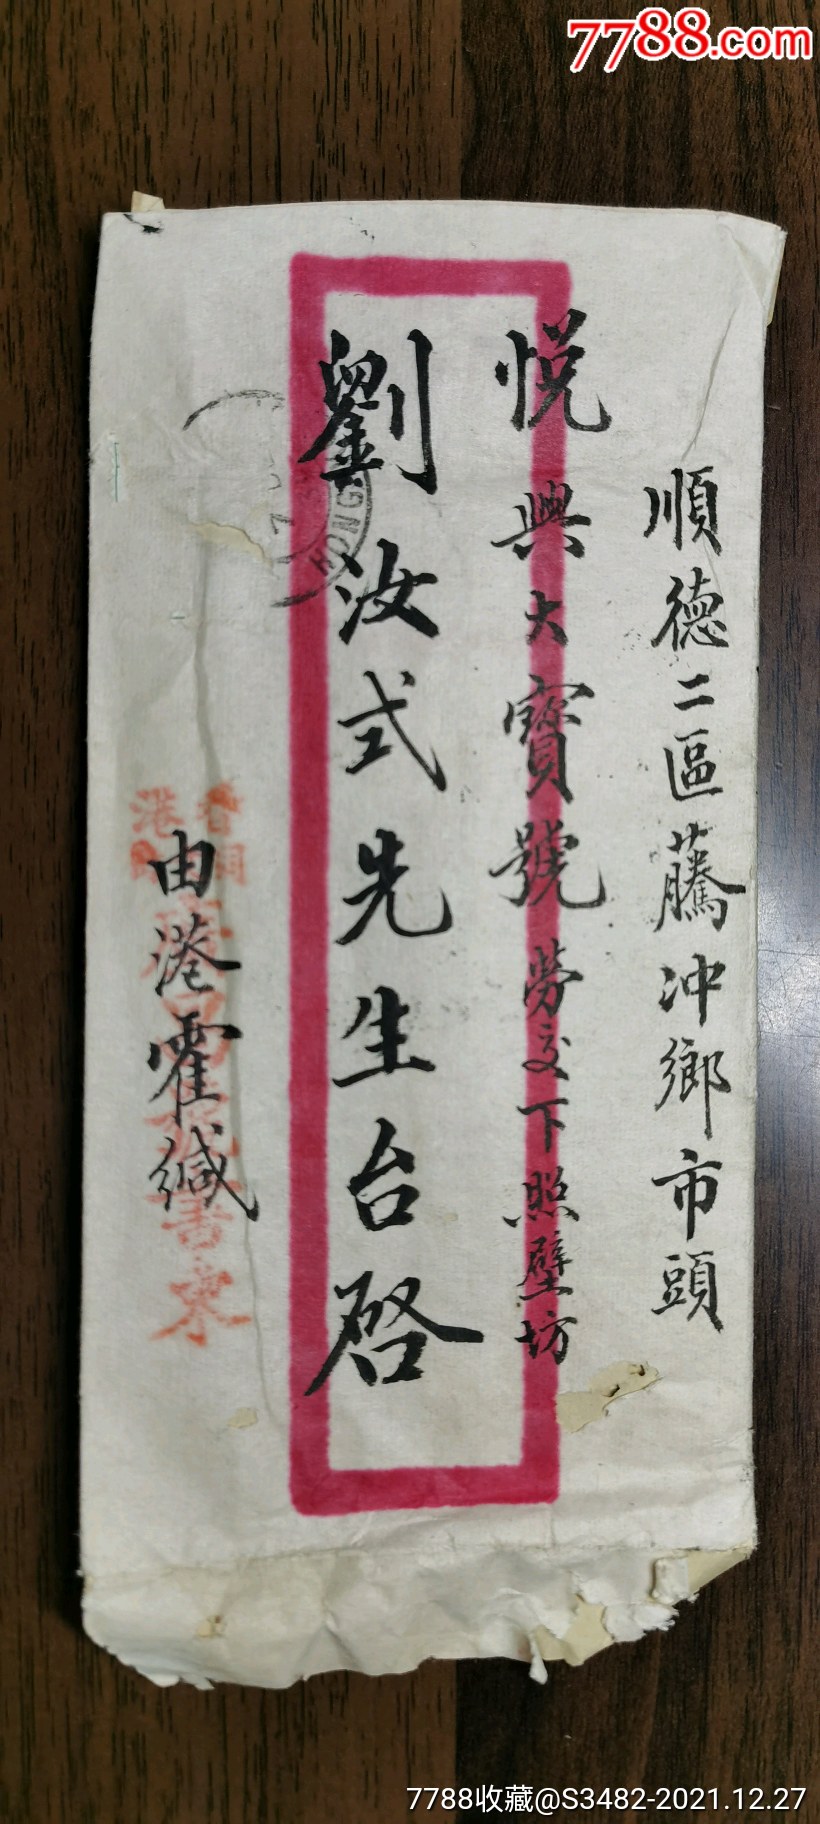 7788.com
順德二區藤冲鄉市頭
悦興大寶號勞交下照壁坊
劉汝式先生台啓
由港霍緘
香港
書柬
HONG
7788收藏@S3482-2021.12.27